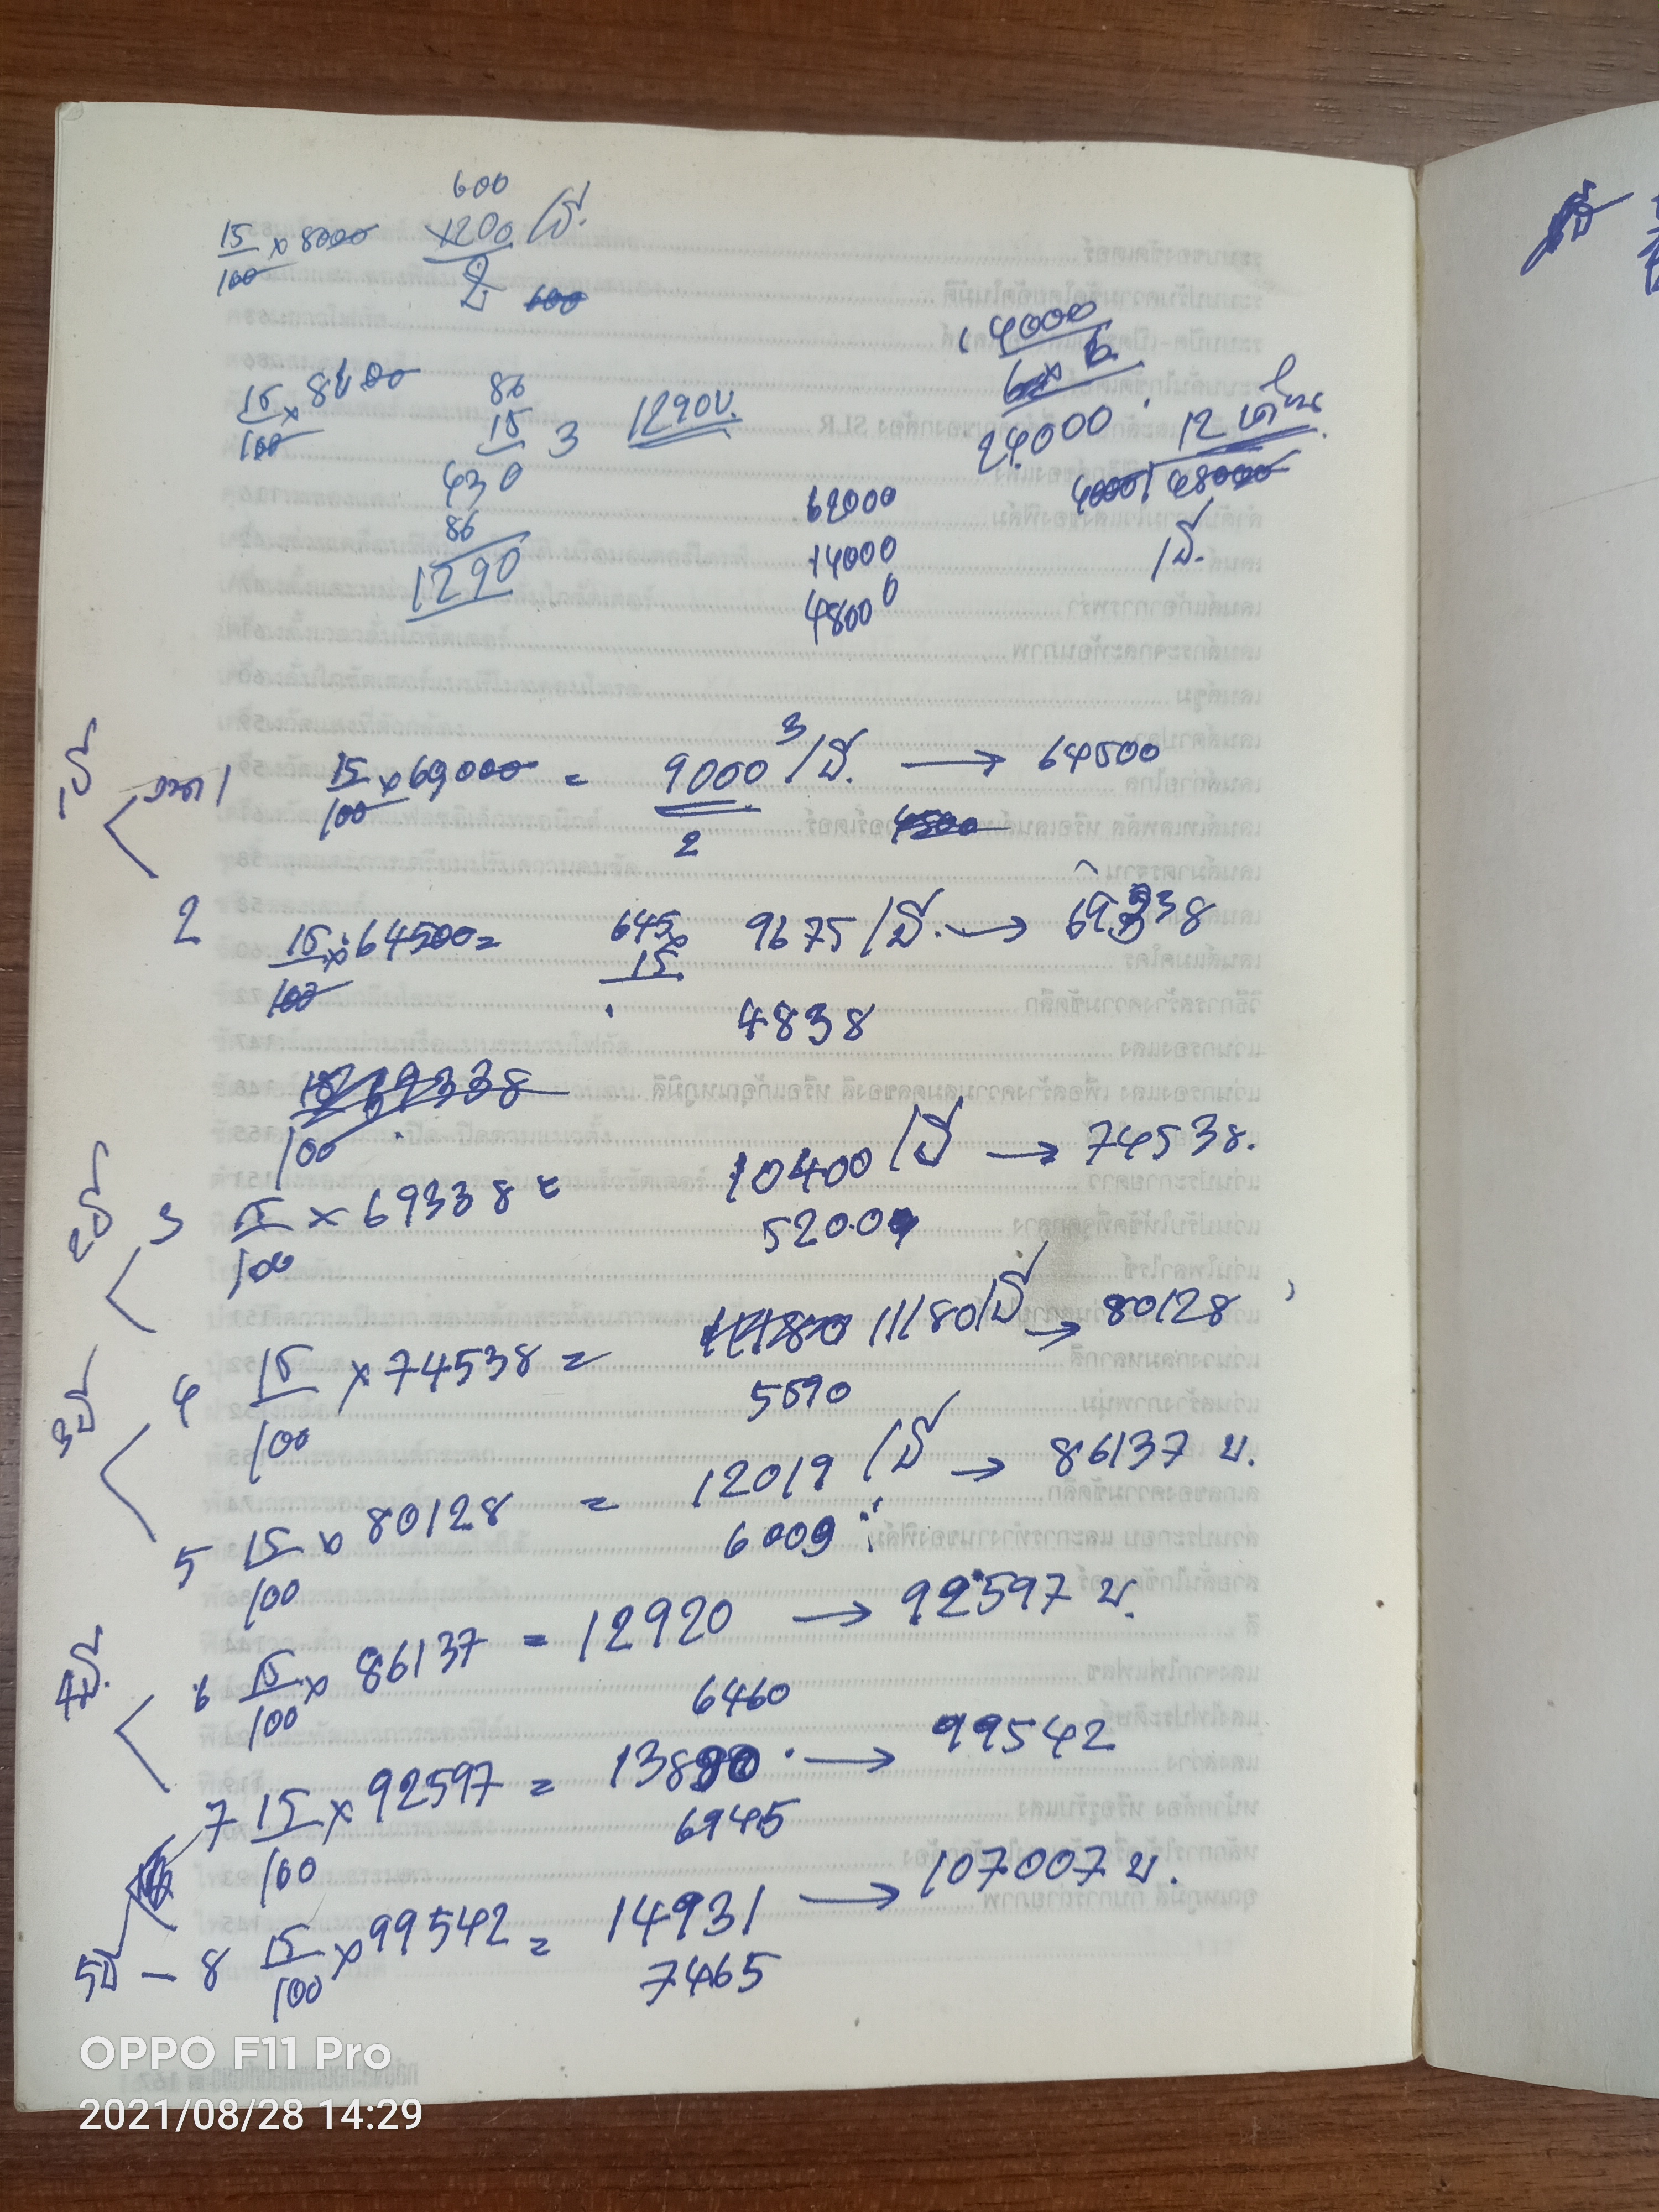 600
15/100 × 8000 ×1200 /ปี.
2 600
15/100 × 8600 86 1290บ.
15 3
430
86
1290
14000
24000 12 เดือน
4000 48000
62000 1ปี.
14000
48000
1ปี งวด 1 15/100 × 60,000 = 9000 /ปี. → 64500
2 4500
2 15/100 × 64500 = 645 × 15 9675 /ปี. → 69338
4838
100
2ปี 3 15/100 × 69338 = 10400 /ปี → 74538.
5200
3ปี 4 15/100 × 74538 = 11180 11180/ปี → 80128
5590
5 15/100 × 80128 = 12019 /ปี → 86137 บ.
6009
4ปี. 6 15/100 × 86137 = 12920 → 92597 บ.
6460
7 15/100 × 92597 = 13890 → 99542
6945
5ปี – 8 15/100 × 99542 = 14931 → 107007 บ.
7465
OPPO F11 Pro
2021/08/28 14:29